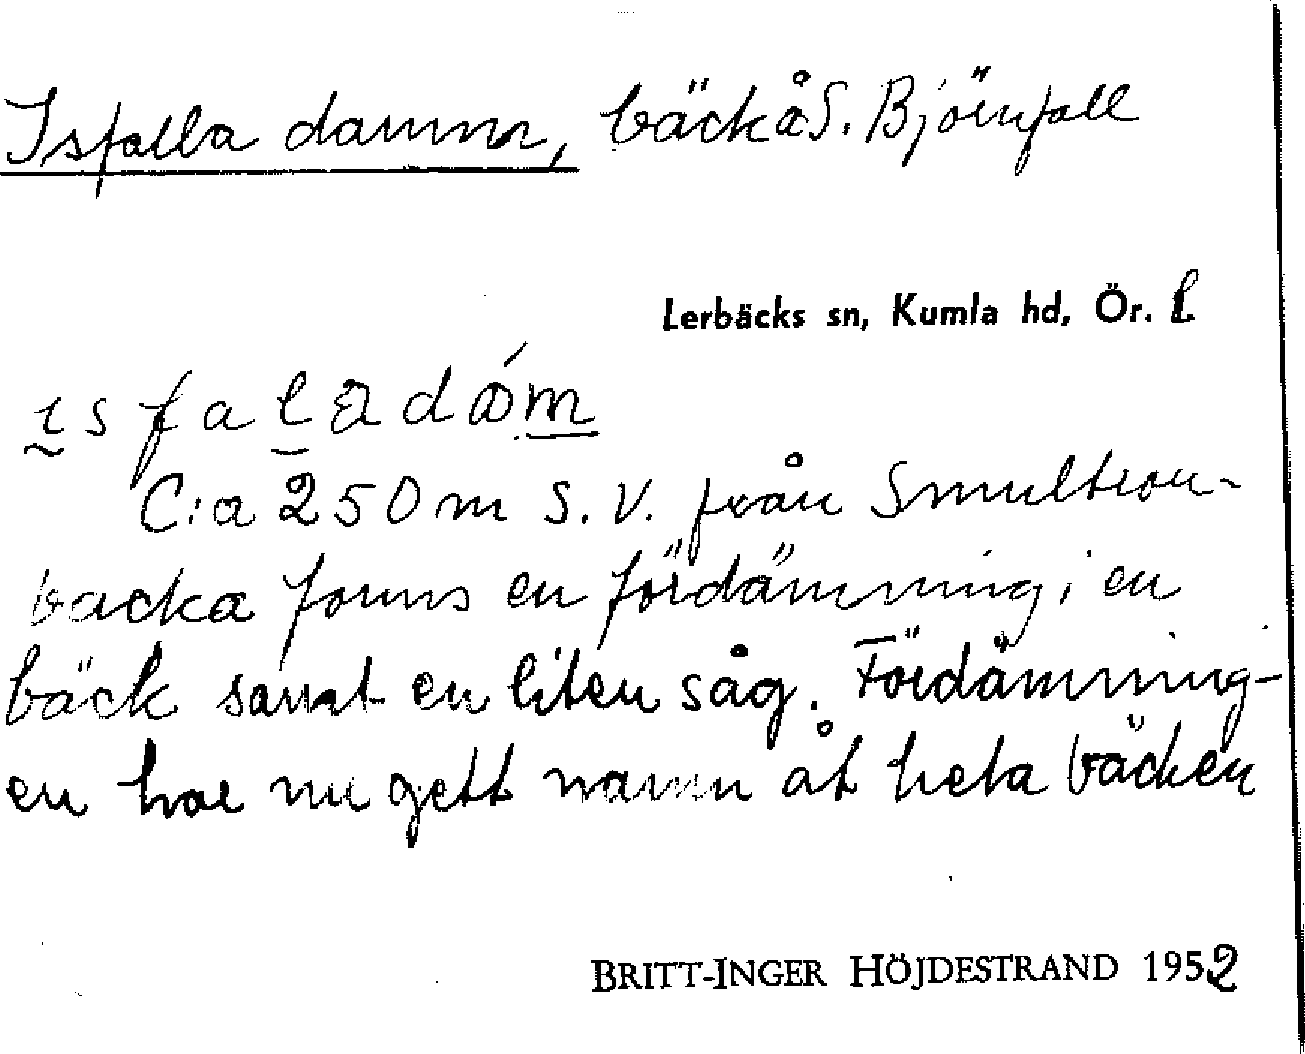 Isfalla damm, bäck å S. Björnfall
Lerbäcks sn, Kumla hd, Ör. l
ɪsfaladám
C:a 250 m S.V. från Smultron-
backa fanns en fördämning i en
bäck samt en liten såg. Fördämning-
en har nu gett namn åt hela bäcken
BRITT-INGER HÖJDESTRAND 1952